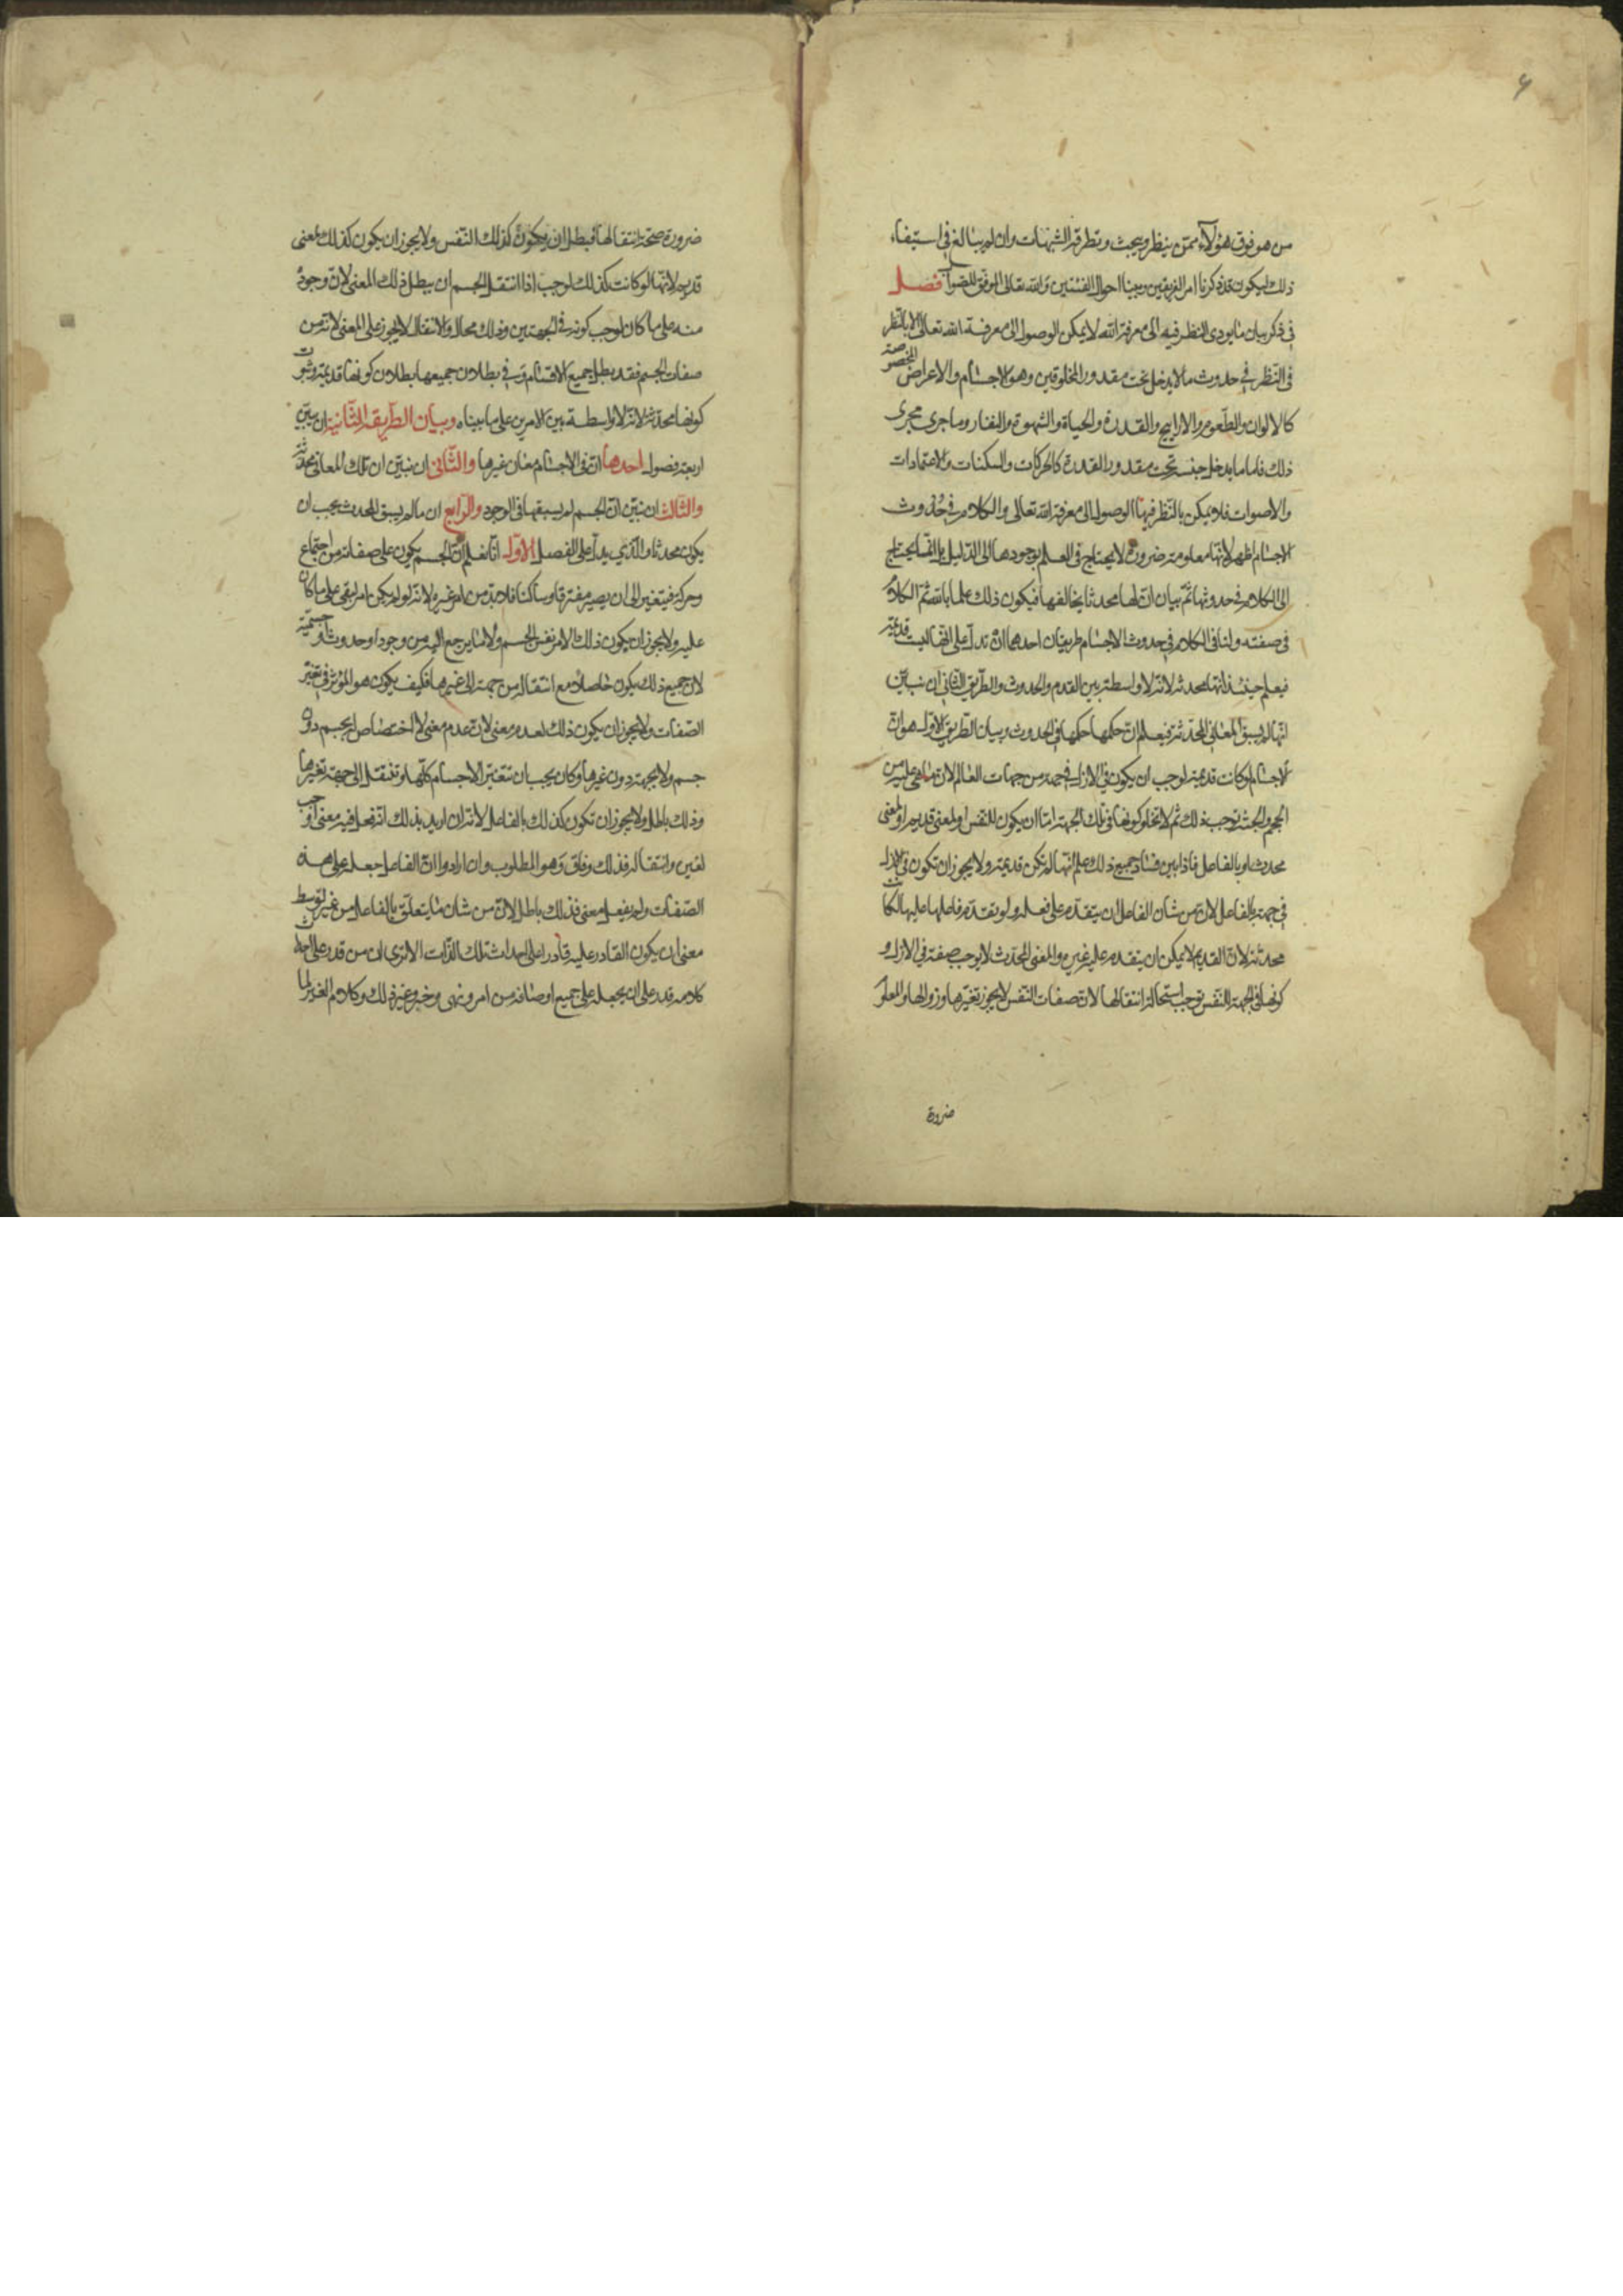 من هو فوق هؤلاء ممّن ينظر ويبحث وتطرقه الشبهات وان لم يبالغ في استيفاء
ذلك ليكون قد ذكرنا امر الفريقين وبينا احوال الفئتين والله تعالى الموفق للصواب فصل
في ذكر بيان ما يودى النظر فيه الى معرفة الله لا يمكن الوصول الى معرفة الله تعالى الا بالنظر
في النظر في حدوث ما لا يدخل تحت مقدور المخلوقين وهو الاجسام والاعراض المخصوصة
كالالوان والطعوم والاراييح والقدرة والحياة والشهوة والنفار وما جرى مجرى
ذلك فاما ما يدخل جنسه تحت مقدور القدرة كالحركات والسكنات والاعتمادات
والاصوات فلا يمكن بالنظر فيها الوصول الى معرفة الله تعالى والكلام في حدوث
الاجسام اظهر لانها معلومة ضرورة لا يحتاج في العلم بوجودها الى الدليل بل انما يحتاج
الى الكلام في حدوثها ثم بيان ان لها محدثا يخالفها فيكون ذلك علما بالله ثم الكلام
في صفته ولنا في الكلام في حدوث الاجسام طريقان احدهما ان ندل على انها ليست قديمة
فيعلم حينئذ انها محدثة لانه لا واسطة بين القدم والحدوث والطريق الثاني ان نبيّن
انها لم يسبق المعاني المحدثة فيعلم ان حكمها حكمها في الحدوث وبيان الطريق الاول هو ان
الاجسام لو كانت قديمة لوجب ان يكون في الازل في جهة من جهات العالم لان ما هى عليه من
الحجم والجثه توجب ذلك ثم لا تخلو كونها في تلك الجهة اما ان يكون للنفس او لمعنى قديم او لمعنى
محدث او بالفاعل فاذا بين فساد جميع ذلك علم انها لم تكن قديمة ولا يجوز ان تكون في الازل
في جهة بالفاعل لان من شان الفاعل ان يتقدم على فعله ولو تقدم فاعلها عليها لكانت
محدثة لان القديم لا يمكن ان يتقدم عليه غيره والمعنى المحدث لا يوجب صفة في الازل و
كونها في الجهة للنفس توجب استحالة انتقالها لان صفات النفس لا يجوز تغيّرها وزوالها والمعلوم
ضرورة
ضرورة صحة انتقالها فبطل ان يكون كذلك للنفس ولا يجوز ان يكون كذلك لمعنى
قديم لانها لو كانت كذلك لوجب اذا انتقل الجسم ان يبطل ذلك المعنى لان وجوده
منه على ما كان لوجب كونه في الجهتين وذلك محال والانتقال لا يجوز على المعنى لانه من
صفات الجسم فقد بطل جميع الاقسام وفي بطلان جميعها بطلان كونها قديمة وثبوت
كونها محدثة لانه لا واسطة بين الامرين على ما بيناه وبيان الطريقة الثانية ان نبيّن
اربعة فصول احدها ان في الاجسام معان غيرها والثاني ان نبيّن ان تلك المعاني محدثة
والثالث ان نبيّن ان الجسم لم يسبقها في الوجود والرابع ان ما لم يسبق المحدث يجب ان
يكون محدثا والذي يدل على الفصل الاول انا نعلم ان الجسم يكون على صفات من اجتماع
وحركة فيتغير الى ان يصير مفترقا وساكنا فلا بد من امر غيره لانه لو لم يكن امر لبقى على ما كان
عليه ولا يجوز ان يكون ذلك الامر نفس الجسم ولا ما يرجع اليه من وجود او حدوث او جسمية
لان جميع ذلك يكون حاصلا مع انتقاله من جهة الى غيرها فكيف يكون هو المؤثر في تغير
الصفات ولا يجوز ان يكون ذلك لعدم معنى لان عدم معنى لا اختصاص له بجسم دون
جسم ولا بجهة دون غيرها وكان يجب ان تتغيّر الاجسام كلها وتنتقل الى جهة تغيرها
وذلك باطل ولا يجوز ان تكون كذلك بالفاعل لانه ان اريد بذلك انه فعل فيه معنى اوجب
تغيره وانتقاله فذلك وفاق وهو المطلوب وان ارادوا ان الفاعل جعله على هذه
الصفات ولم يفعل معنى فذلك باطل لان من شان ما يتعلق بالفاعل من غير توسط
معنى ان يكون القادر عليه قادرا على احداث تلك الذات الا ترى ان من قدر على احداث
كلامه قدر على ان يجعله على جميع اوصافه من امر ونهى وخبر وغير ذلك وكلام الغير لما